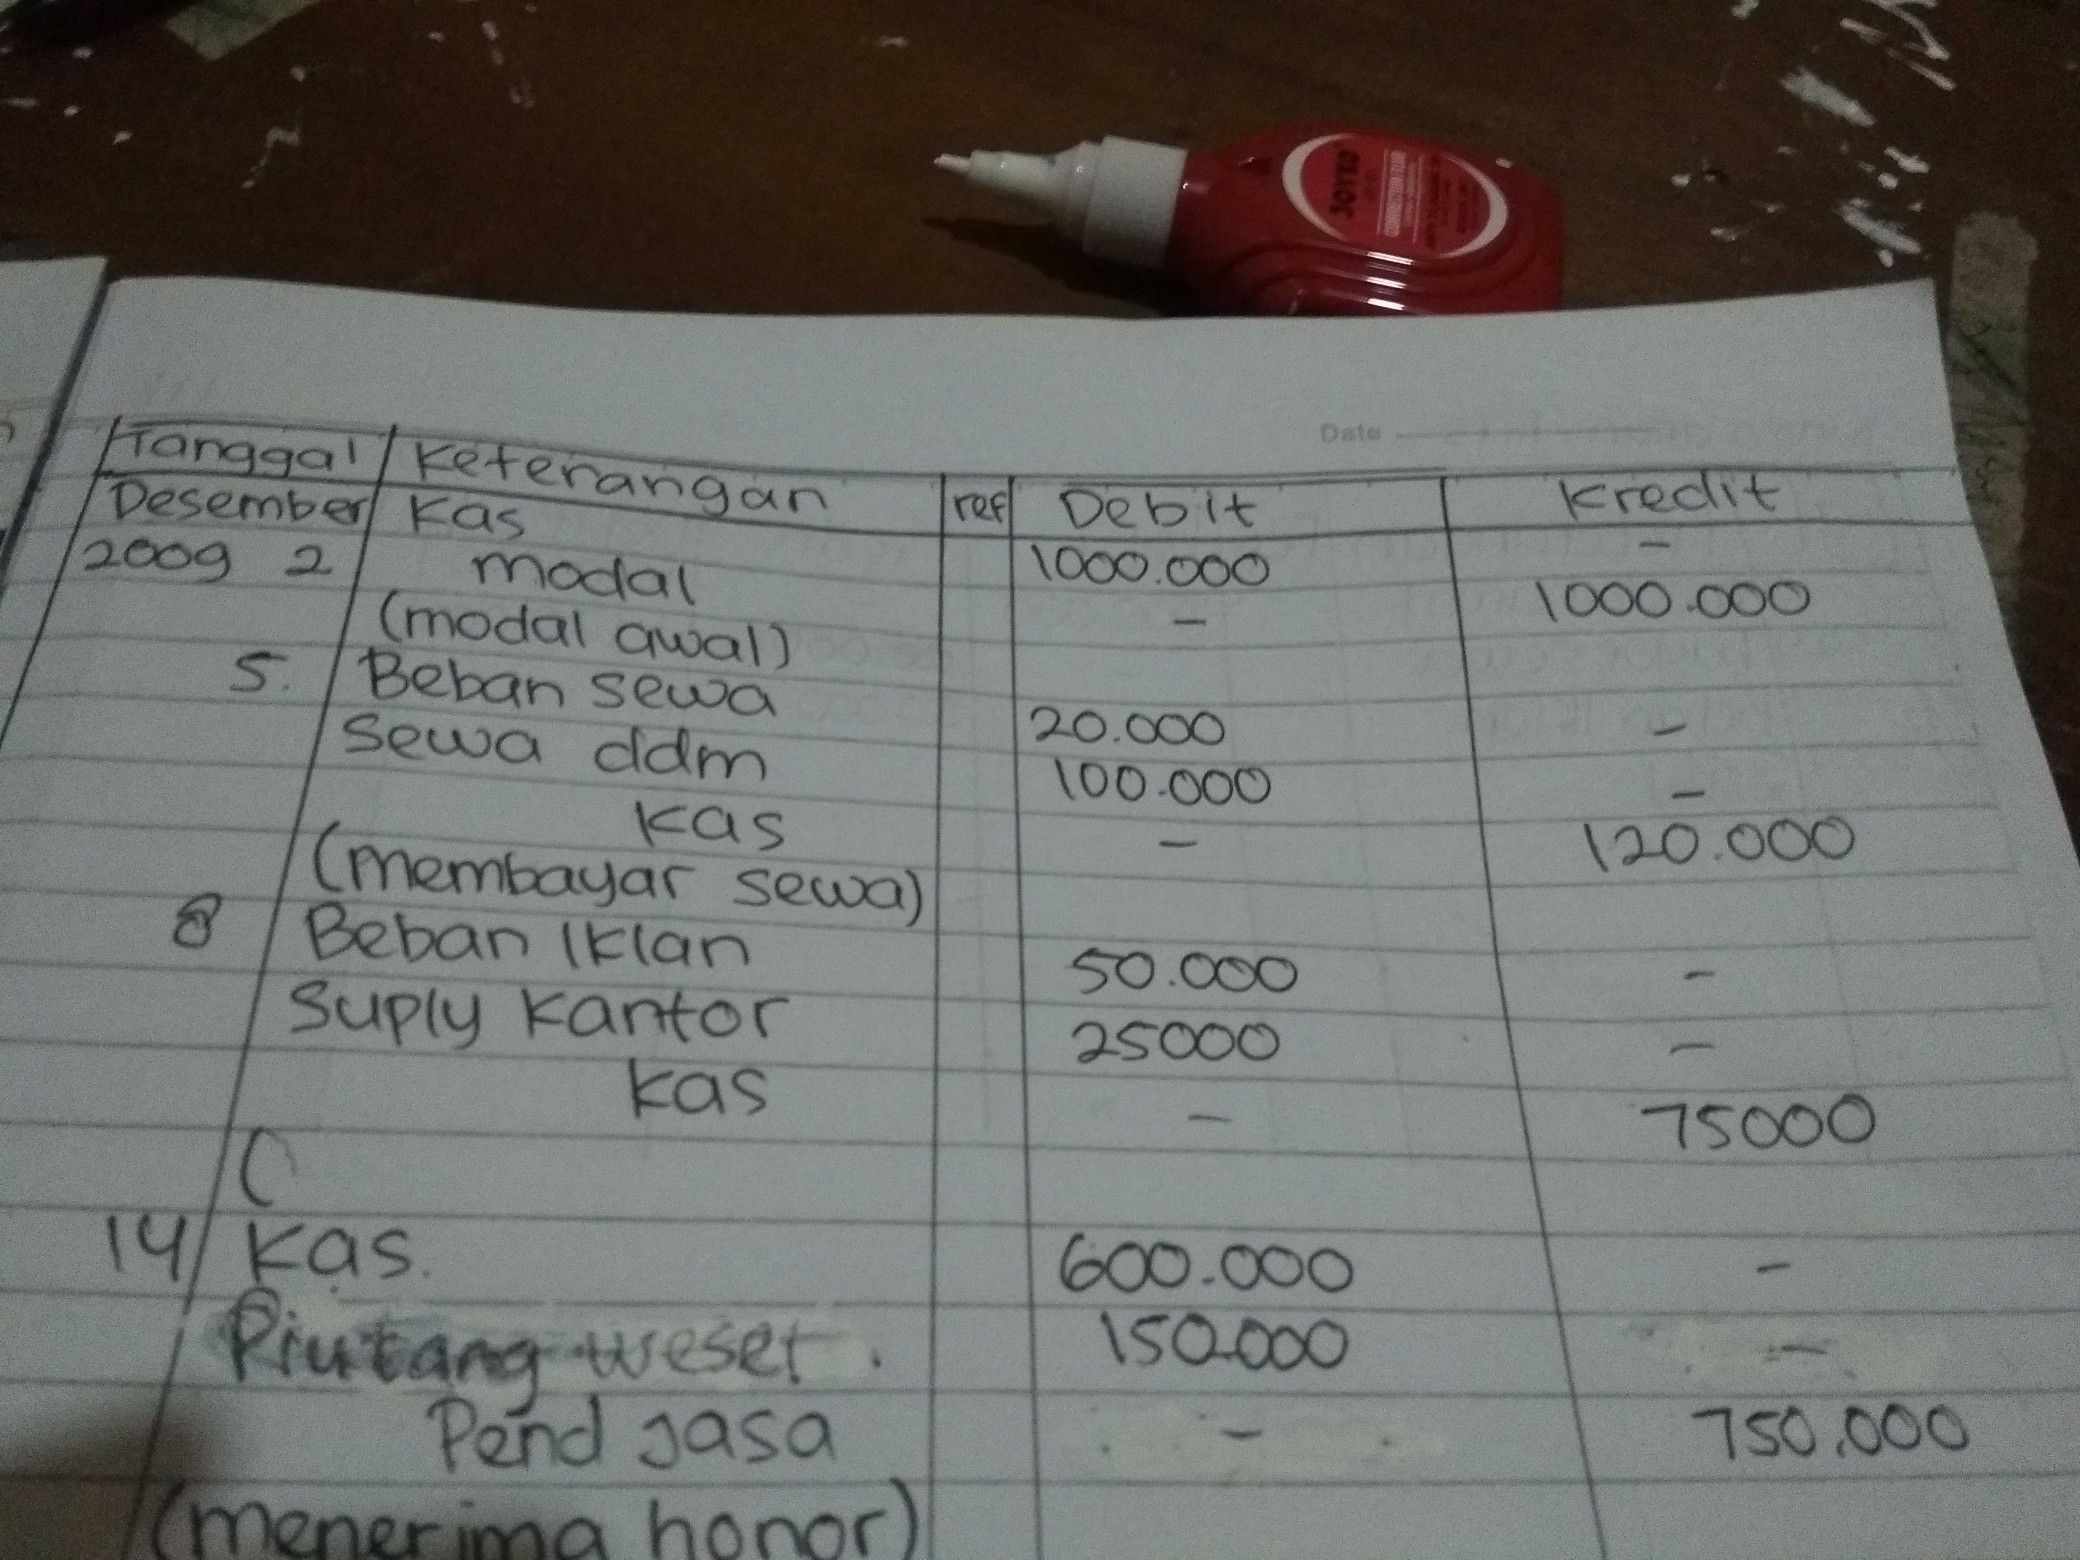 JOYKO
CORRECTION FLUID
Date
Tanggal Keterangan ref Debit Kredit
Desember Kas 1000.000 -
2009 2 modal - 1000.000
(modal awal)
5. Beban sewa 20.000 -
Sewa ddm 100.000 -
Kas - 120.000
(membayar sewa)
8 Beban Iklan 50.000 -
Suply Kantor 25000 -
kas - 75000
(
14 Kas. 600.000 -
Piutang wesel. 150.000 -
Pend Jasa - 750.000
(menerima honor)